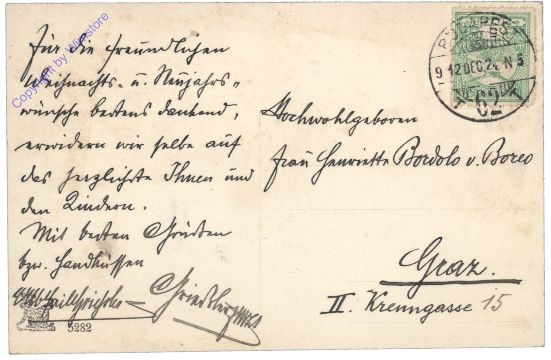 Für die freundlichen
Weihnachts- u. Neujahrs-
wünsche bestens dankend,
erwidern wir selbe auf
das herzlichste Ihnen und
den Kindern.
Mit besten Grüßen
bzw. Handküssen
5282
Copyright by Winstore
BUDAPEST
912 DEC 24 N 5
62
Hochwohlgeboren
Frau Henriette Bordolo v. Boreo
Graz.
II. Krenngasse 15